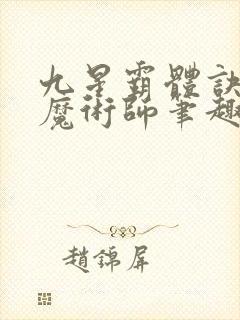 九星霸體訣
魔術師筆趣
趙錦屏